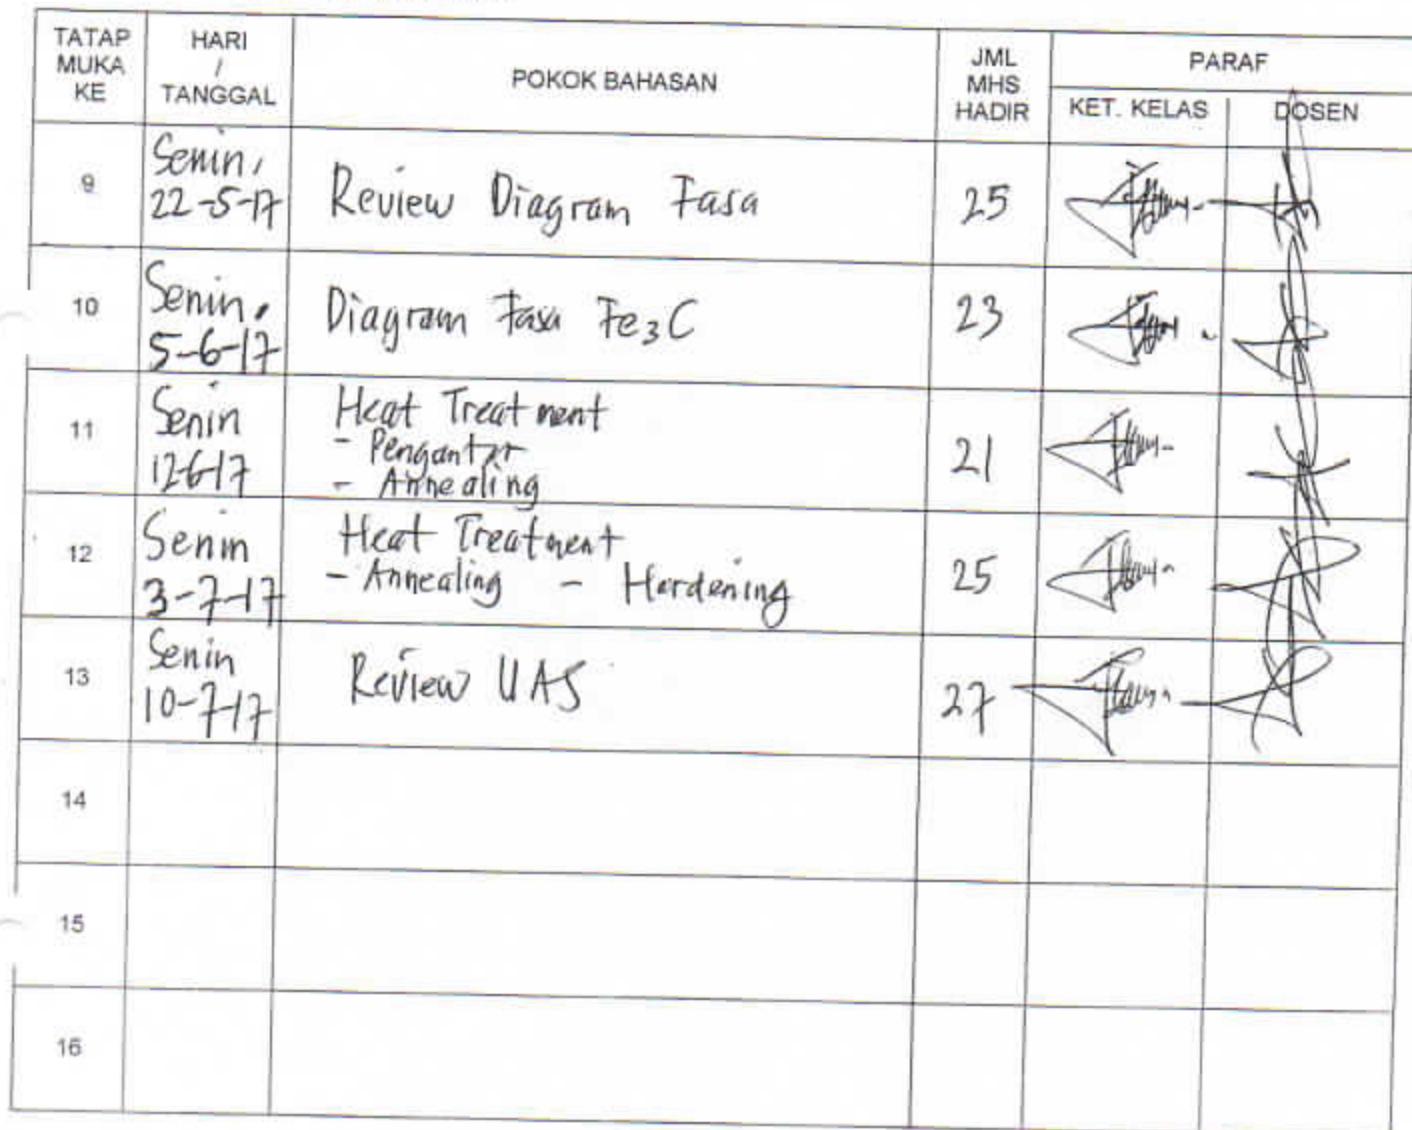 TATAP MUKA KE
HARI / TANGGAL
POKOK BAHASAN
JML MHS HADIR
PARAF
KET. KELAS
DOSEN
9
Senin,
22-5-17
Review Diagram Fasa
25
10
Senin,
5-6-17
Diagram Fasa Fe₃C
23
11
Senin
12-6-17
Heat Treatment
- Pengantar
- Annealing
21
12
Senin
3-7-17
Heat Treatment
- Annealing - Hardening
25
13
Senin
10-7-17
Review UAS
27
14
15
16